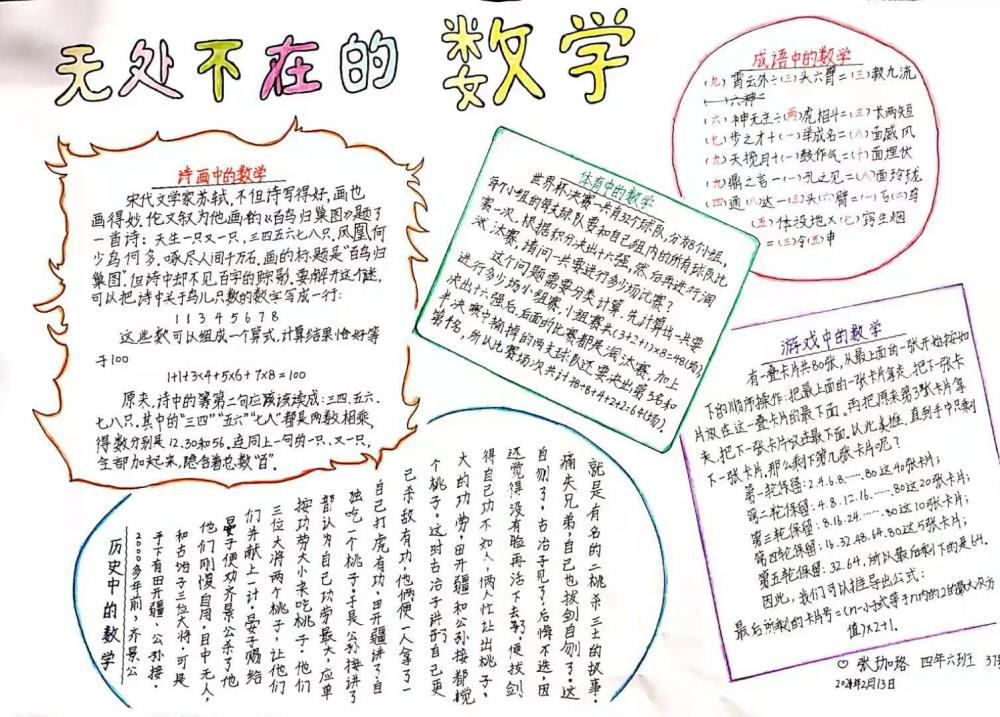 无处不在的数学
诗画中的数学
宋代文学家苏轼,不但诗写得好,画也
画得妙。伦文叙为他画的《百鸟归巢图》题了
一首诗:天生一只又一只,三四五六七八只。凤凰何
少鸟何多,啄尽人间千万石。画的标题是“百鸟归
巢图”,但诗中却不见百字的踪影。要解开这个谜,
可以把诗中关于鸟儿只数的数字写成一行:
1 1 3 4 5 6 7 8
这些数可以组成一个算式,计算结果恰好等
于100
1+1+3×4+5×6+7×8=100
原来,诗中的第二句应该读成:三四、五六、
七八只。其中的“三四”“五六”“七八”都是两数相乘,
得数分别是12、30和56。连同上一句的一只、又一只,
全部加起来,隐含着总数“百”。
体育中的数学
世界杯决赛一共有32个球队,分为8个小组,
每个小组的每支球队要和自己组内的所有球队比
赛一次。根据积分决出十六强,然后再进行淘
汰决赛。请问一共要进行多少场比赛?
这个问题需要分类计算。先计算出一共要
进行多少场小组赛,小组赛共(3+2+1)×8=48(场)
决出十六强后,后面的比赛都是淘汰赛。加上
半决赛中输掉的两支球队还要决出第3名和
第4名,所以比赛场次共计48+8+4+2+2=64(场)。
成语中的数学
(九)霄云外÷(三)头六臂=(三)教九流
(六)神无主÷(两)虎相斗=(三)长两短
(七)步之才+(一)举成名=(八)面威风
(九)天揽月+(一)鼓作气=(十)面埋伏
(九)鼎之言-(一)孔之见=(八)面玲珑
(四)通(八)达-(三)头(六)臂=(一)石(二)鸟
(五)体投地×(七)窍生烟
=(三)令(五)申
游戏中的数学
有一叠卡片共80张,从最上面的一张开始按如
下的顺序操作:把最上面的一张卡片拿走,把下一张卡
片放在这一叠卡片的最下面。再把原来第3张卡片拿
走,把下一张卡片放在最下面。从此类推,直到手中只剩
下一张卡片,那么剩下第几张卡片呢?
第一轮保留:2.4.6.8.……80这40张卡片;
第二轮保留:4.8.12.16.……80这20张卡片;
第三轮保留:8.16.24.……80这10张卡片;
第四轮保留:16.32.48.64.80这5张卡片;
第五轮保留:32.64.所以最后剩下的是64.
因此,我们可以推导出公式:
最后所剩的卡片号=(n-小于或等于n内的2的最大次方
值)×2+1.
历史中的数学
2000多年前,齐景公
手下有田开疆、公孙接、
和古治子三位大将,可是
他们刚慢自用,目中无人,
晏子便劝齐景公杀了他
们并献上一计,晏子赐给
三位大将两个桃子,让他们
按功劳大小来吃桃子,他们
都认为自己功劳最大,应单
独吃一个桃子。于是公孙接讲了
自己打虎有功,田开疆讲了自
己杀敌有功,他俩便一人拿了一
个桃子。这时古治子讲了自己更
大的功劳,田开疆和公孙接都觉
得自己功不如人,俩人忙让出桃子。
还觉得没有脸再活下去了,便拔剑
自刎了。古治子见了,后悔不迭,因
痛失兄弟,自己也拔剑自刎了。这
就是有名的二桃杀三士的故事。
张珈珞 四年六班
2024年2月13日